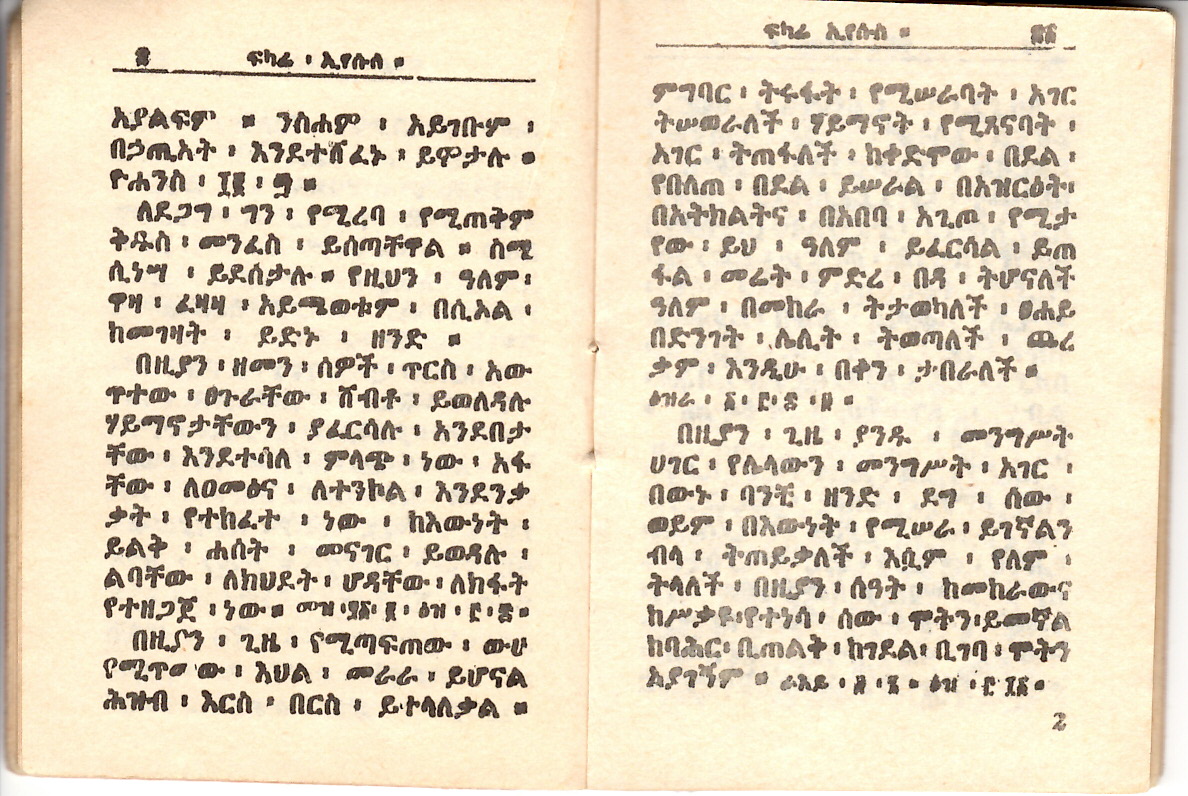 ፍካሬ ፡ ኢየሱስ ።
አያልፍም ። ንስሐም ፡ አይገቡም ፡
በኃጢአት ፡ እንደተሸፈኑ ፡ ይሞታሉ ።
ዮሐንስ ፡ ፲፪ ፡
ለደጋግ ፡ ግን ፡ የሚረባ ፡ የሚጠቅም
ቅዱስ ፡ መንፈስ ፡ ይሰጣቸዋል ። ስሜ
ሲነሣ ፡ ይደሰታሉ ። የዚህን ፡ ዓለም ፡
ዋዛ ፡ ፈዛዛ ፡ አይጫወቱም ፡ በሲኦል ፡
ከመገዛት ፡ ይድኑ ፡ ዘንድ ።
በዚያን ፡ ዘመን ፡ ሰዎች ፡ ጥርስ ፡ አው
ጥተው ፡ ፀጉራቸው ፡ ሸብቶ ፡ ይወለዳሉ
ሃይማኖታቸውን ፡ ያፈርሳሉ ፡ አንደበታ
ቸው ፡ እንደተሳለ ፡ ምላጭ ፡ ነው ፡ አፋ
ቸው ፡ ለዐመፅና ፡ ለተንኮል ፡ እንደንቃ
ቃት ፡ የተከፈተ ፡ ነው ፡ ከእውነት ፡
ይልቅ ፡ ሐሰት ፡ መናገር ፡ ይወዳሉ ፡
ልባቸው ፡ ለክህደት ፡ ሆዳቸው ፡ ለክፋት
የተዘጋጀ ፡ ነው ። መዝ ፡
በዚያን ፡ ጊዜ ፡ የሚጣፍጠው ፡ ውሀ
እህል ፡ መራራ ፡ ይሆናል
ሕዝብ ፡ እርስ ፡ በርስ ፡ ይተላለቃል ።
ፍካሬ ኢየሱስ ።
ምግባር ፡ ትሩፋት ፡ የሚሠራባት ፡ አገር
ትሠወራለች ፡ ሃይማኖት ፡ የሚጸናባት ፡
አገር ፡ ትጠፋለች ፡ ከቀድሞው ፡ በደል ፡
የበለጠ ፡ በደል ፡ ይሠራል ፡ በአዝርዕት፡
በአትክልትና ፡ በአበባ ፡ አጊጦ ፡ የሚታ
የው ፡ ይህ ፡ ዓለም ፡ ይፈርሳል ፡ ይጠ
ፋል ፡ መሬት ፡ ምድረ ፡ በዳ ፡ ትሆናለች
ዓለም ፡ በመከራ ፡ ትታወካለች ፡ ፀሐይ
በድንገት ፡ ሌሊት ፡ ትወጣለች ፡ ጨረ
ቃም ፡ እንዲሁ ፡ በቀን ፡ ታበራለች ።
ዕዝራ ፡
በዚያን ፡ ጊዜ ፡ ያንዱ ፡ መንግሥት
ሀገር ፡ የሌላውን ፡ መንግሥት ፡ አገር ፡
በውኑ ፡ ባንቺ ፡ ዘንድ ፡ ደግ ፡ ሰው ፡
ወይም ፡ በእውነት ፡ የሚሠራ ፡ ይገኛልን
ብላ ፡ ትጠይቃለች ፡ እሷም ፡ የለም ፡
ትላለች ፡ በዚያን ፡ ሰዓት ፡ ከመከራውና
ከሥቃዩ፡የተነሳ ፡ ሰው ፡ ሞትን፡ይመኛል
ከባሕር፡ ቢጠልቅ ፡ ከገደል፡ ቢገባ ፡ ሞትን
አያገኝም ። ራእይ ፡
2